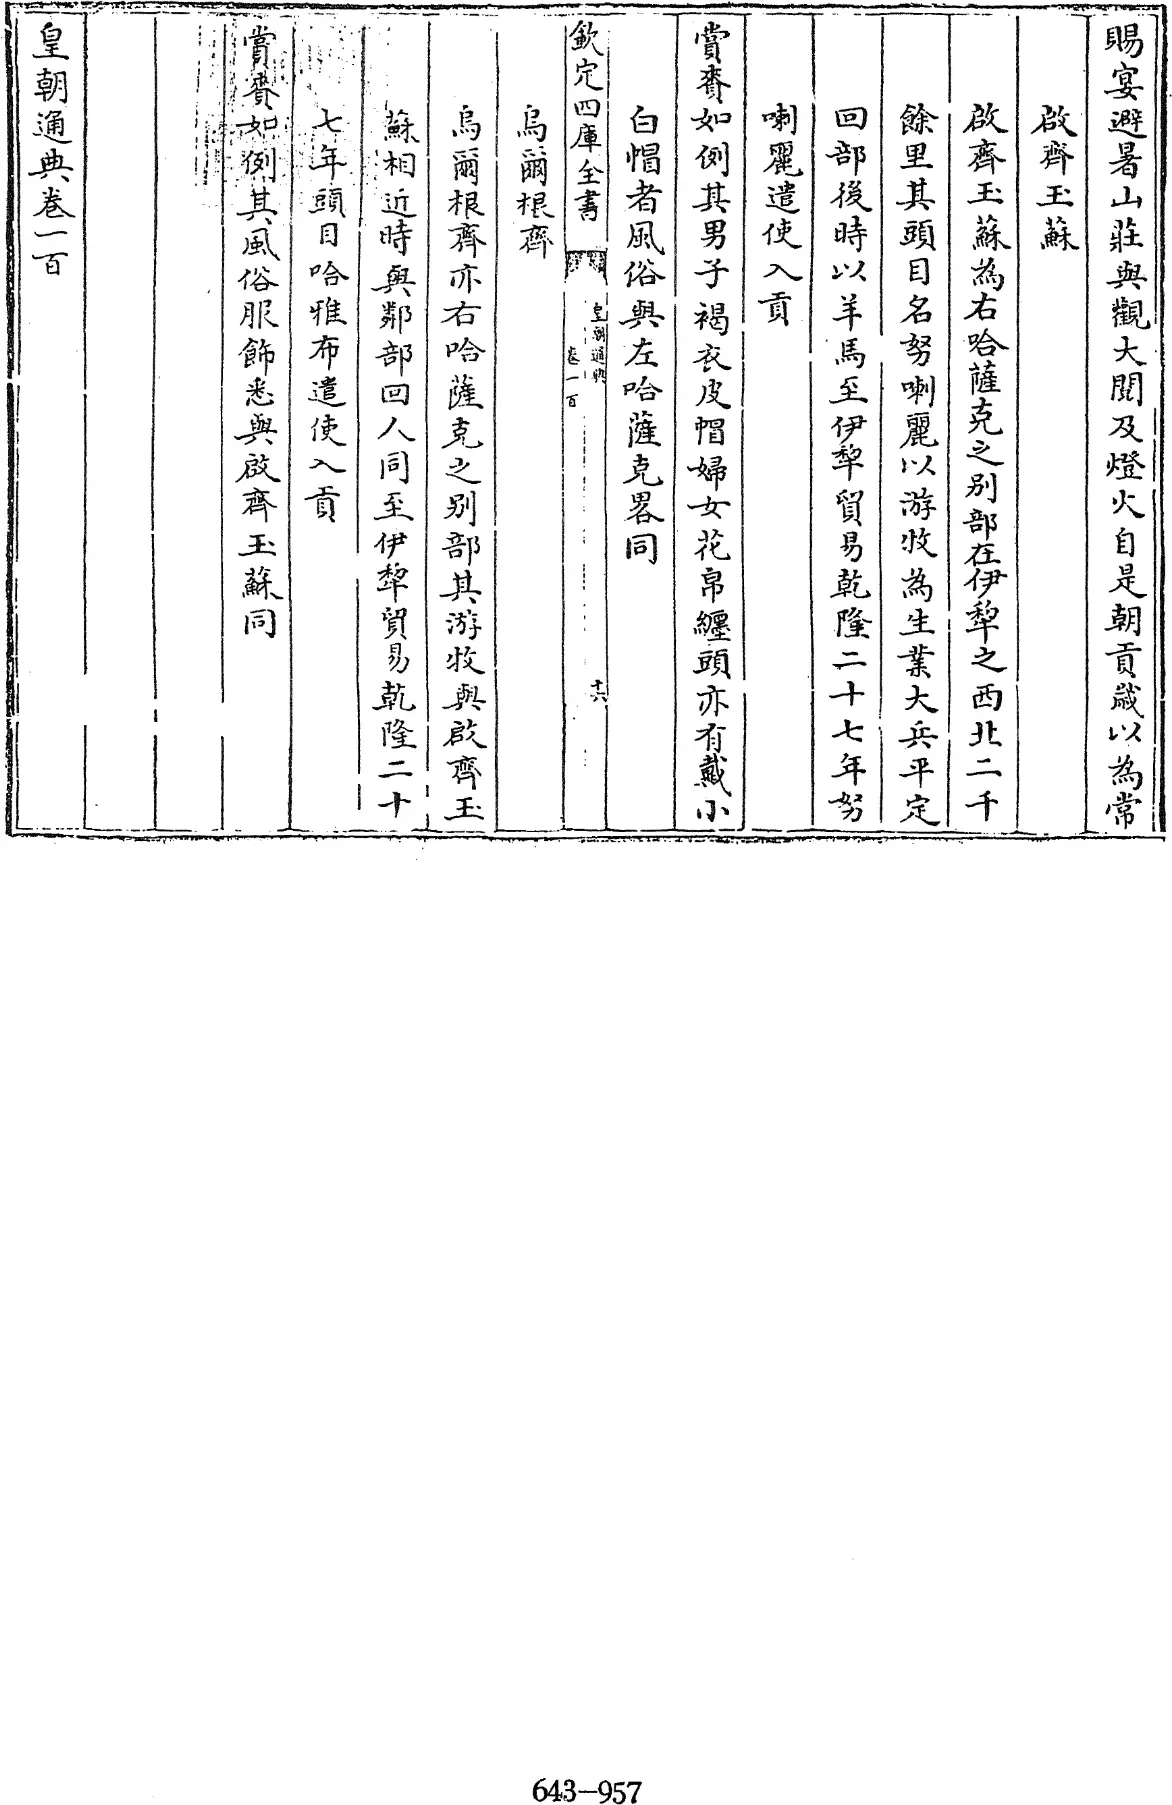 賜宴避暑山莊與觀大閱及燈火自是朝貢歲以為常
啟齊玉蘇
啟齊玉蘇為右哈薩克之別部在伊犂之西北二千
餘里其頭目名努喇麗以游牧為生業大兵平定
回部後時以羊馬至伊犂貿易乾隆二十七年努
喇麗遣使入貢
賞賚如例其男子褐衣皮帽婦女花帛纏頭亦有戴小
白帽者風俗與左哈薩克畧同
欽定四庫全書
皇朝通典
卷一百
十六
烏爾根齊
烏爾根齊亦右哈薩克之別部其游牧與啟齊玉
蘇相近時與鄰部回人同至伊犂貿易乾隆二十
七年頭目哈雅布遣使入貢
賞賚如例其風俗服飾悉與啟齊玉蘇同
皇朝通典卷一百
643-957